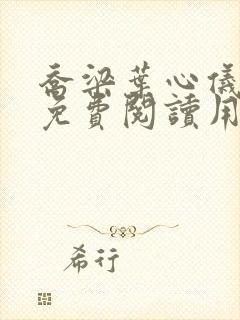 喬梁葉心儀
免費閱讀用
希行